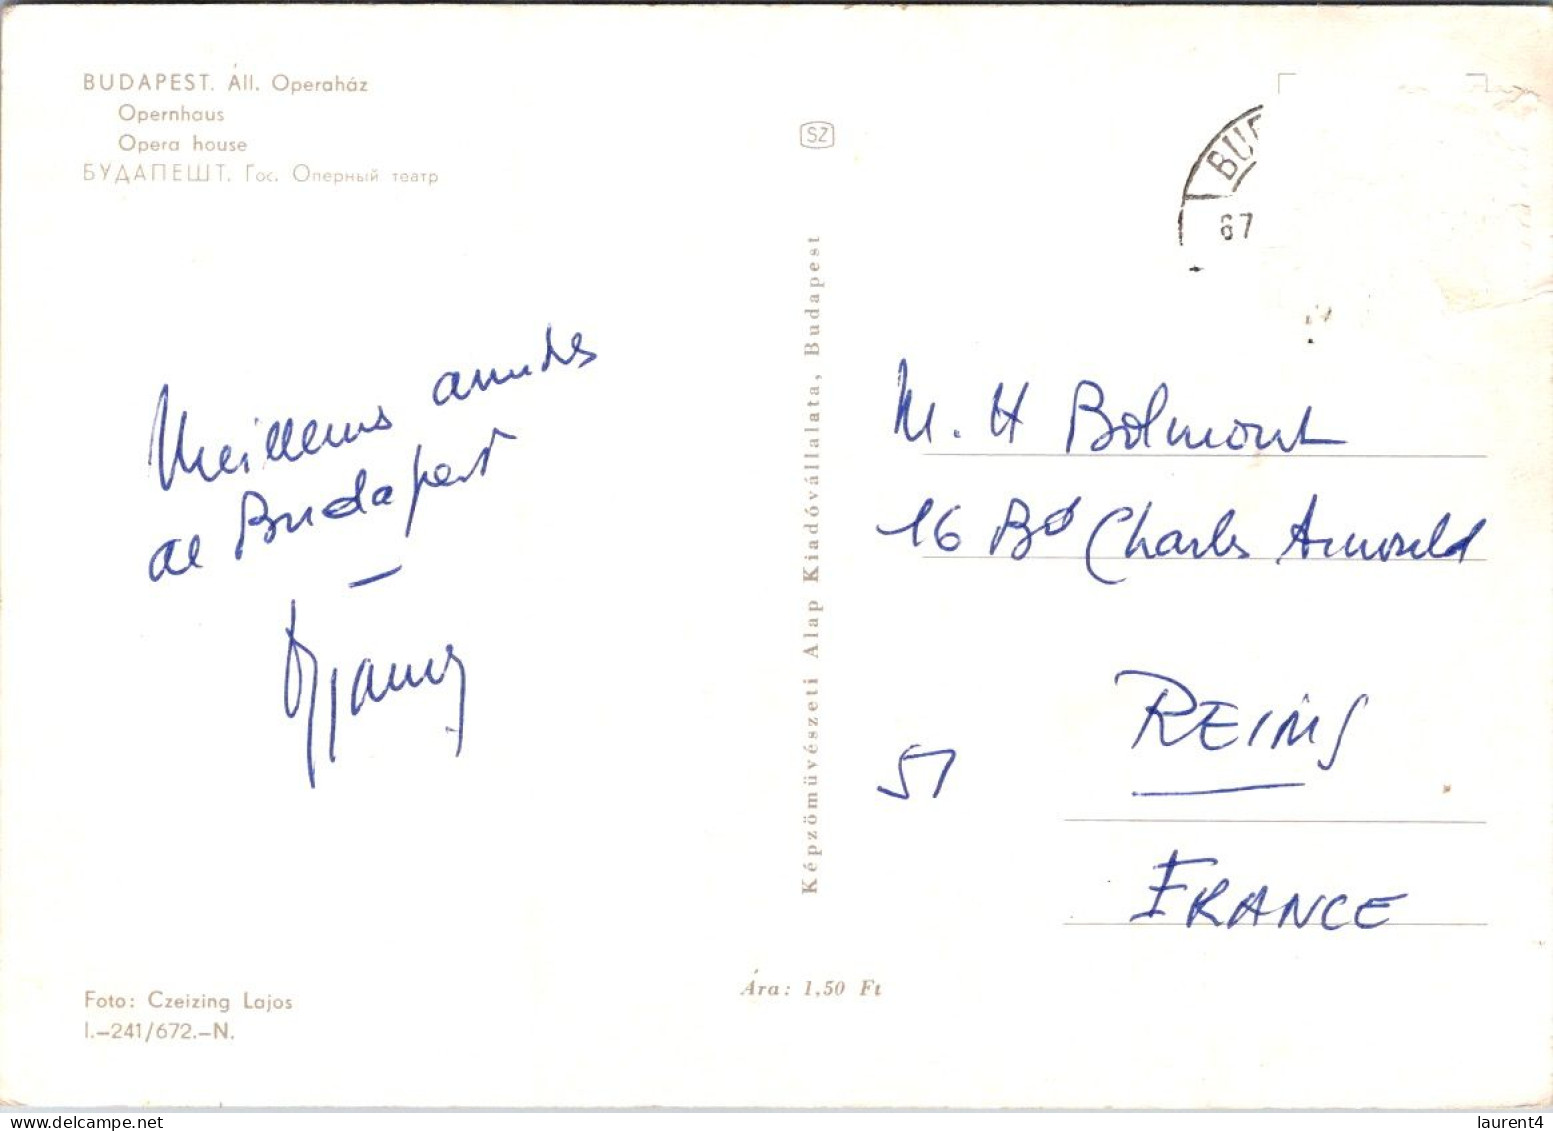 BUDAPEST. Áll. Operaház
Opernhaus
Opera house
БУДАПЕШТ. Гос. Оперный театр
SZ
BUD
67
Meilleures amitiés
de Budapest
Képzőművészeti Alap Kiadóvállalata, Budapest
M. H Bolmont
16 Bd Charles Arnould
51
REIMS
FRANCE
Foto: Czeizing Lajos
I.–241/672.–N.
Ára: 1,50 Ft
laurent4